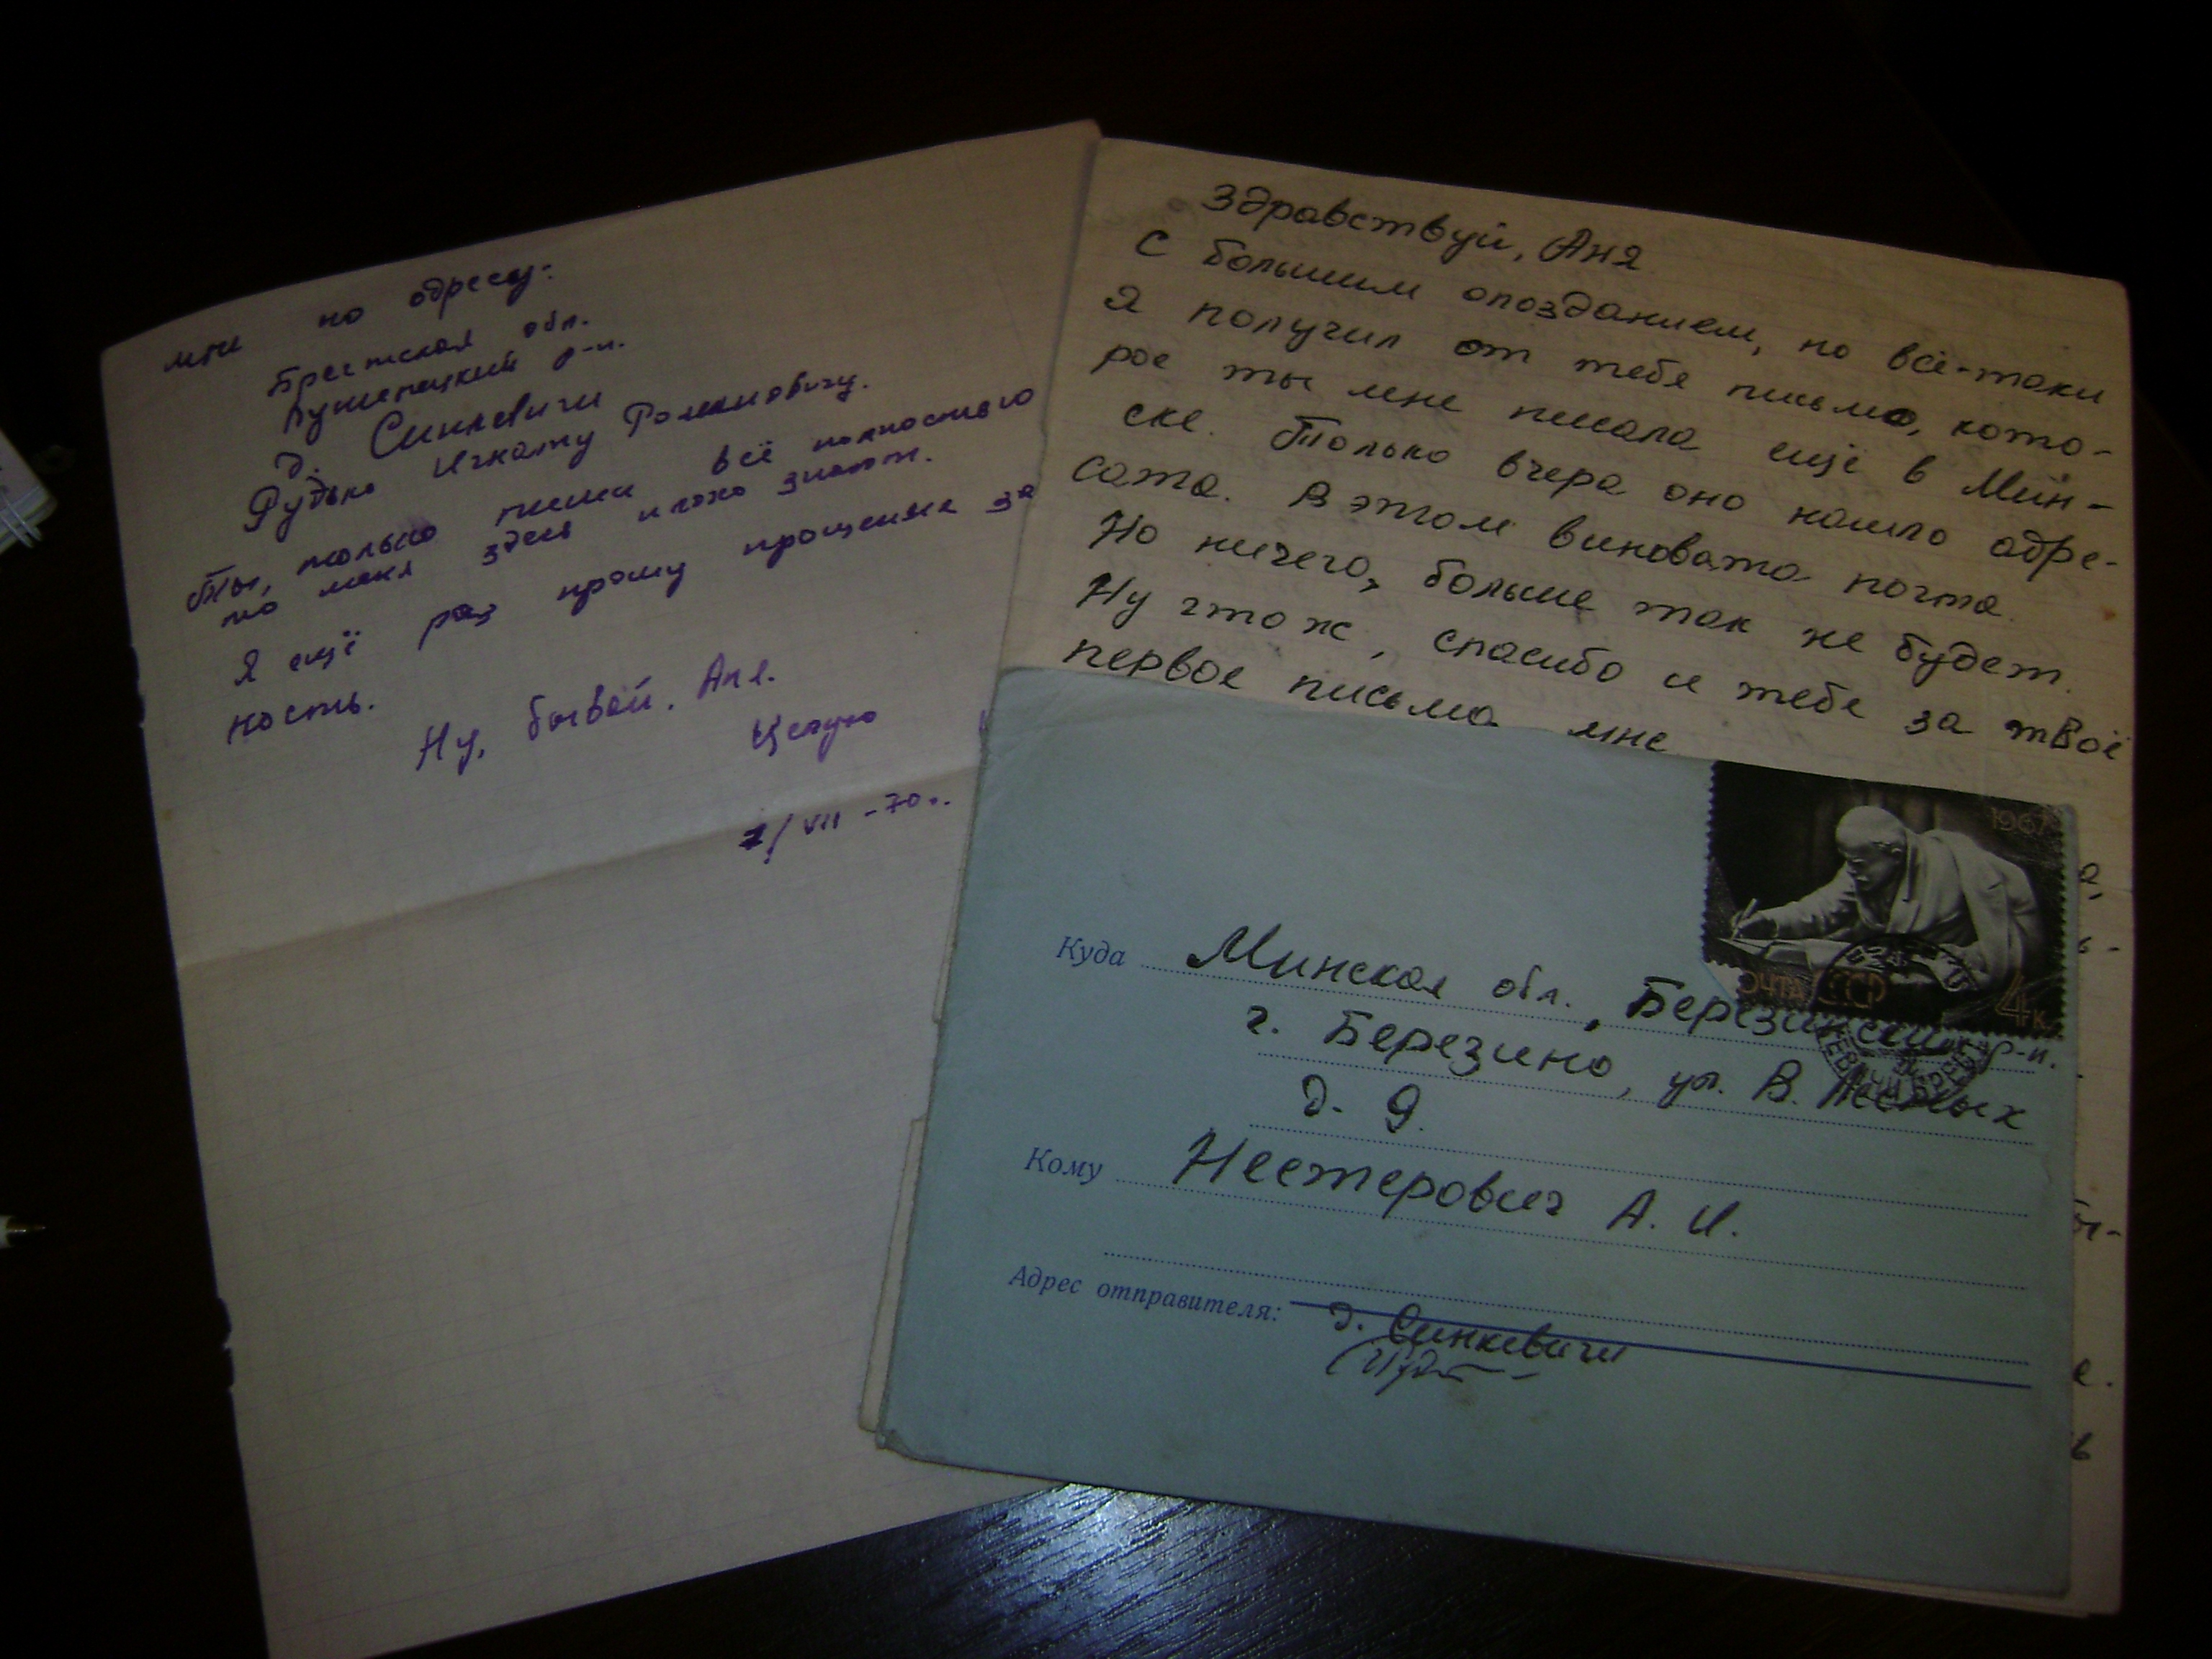 мне по адресу:
Брестская обл.
Лунинецкий р-н.
д. Синкевичи
Рудько Игнату Романовичу.
Ты, только пиши всё полностью
то меня здесь плохо знают.
Я ещё раз прошу прощения за
ность.
Ну, бывай, Аня.
Целую
/VII -70г.
Здравствуй, Аня
С большим опозданием, но всё-таки
Я получил от тебя письмо, кото-
рое ты мне писала ещё в Мин-
ске. Только вчера оно нашло адре-
сата. В этом виновата почта.
Но ничего, больше так не будет.
Ну что ж, спасибо и тебе за твоё
первое письмо мне
1967
ПОЧТА СССР
4к.
Куда Минская обл., Березинский р-н.
г. Березино, ул. В.
д. 9.
Кому Нестерович А. И.
Адрес отправителя: д. Синкевичи